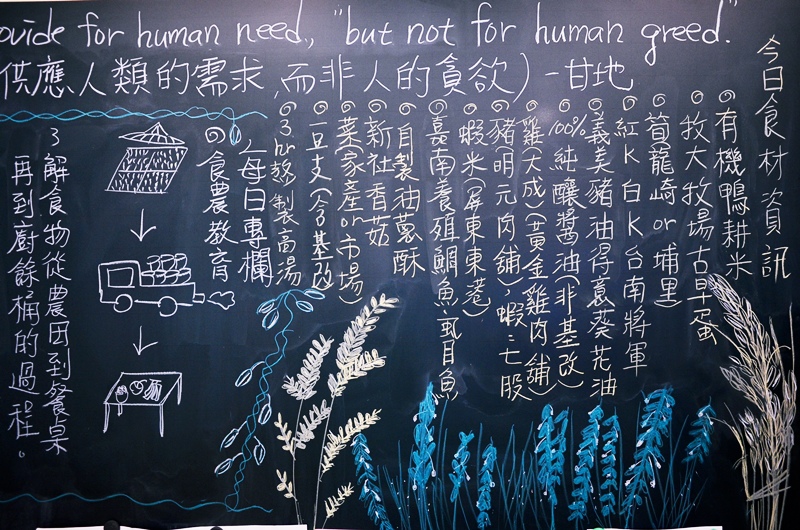 ovide for human need., "but not for human greed."
供應人類的需求,而非人的貪欲)-甘地
今日食材資訊
有機鴨耕米
牧大牧場古早蛋
筍龍崎or埔里
紅K白K台南將軍
義美豬油得意葵花油
100%純釀醬油(非基改)
雞(大成)(黃金雞肉舖)
豬(明元肉舖)蝦:七股
蝦米(屏東東港)
嘉南養殖鯛魚虱目魚
自製油蔥酥
新社香菇
葉(家產or市場)
豆支(非基改
3hr熬製高湯
每日專欄
食農教育
了解食物從農田到餐桌
再到廚餘桶的過程。